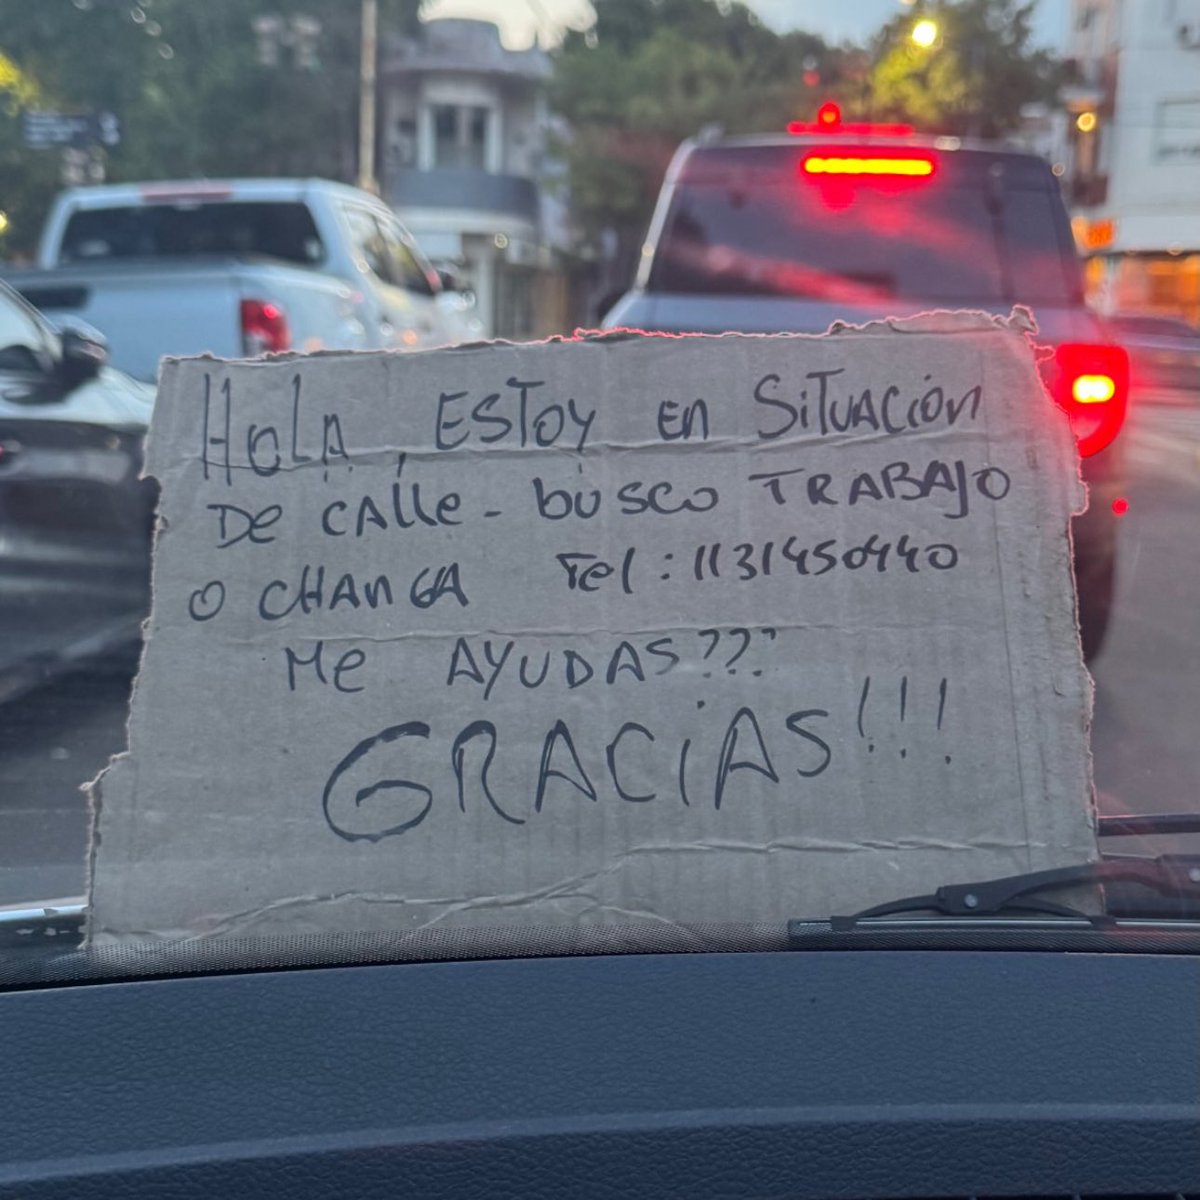 HOLA, ESTOY EN SITUACIÓN
DE CALLE - BUSCO TRABAJO
O CHANGA Tel: 1131450440
Me AYUDAS???
GRACIAS!!!